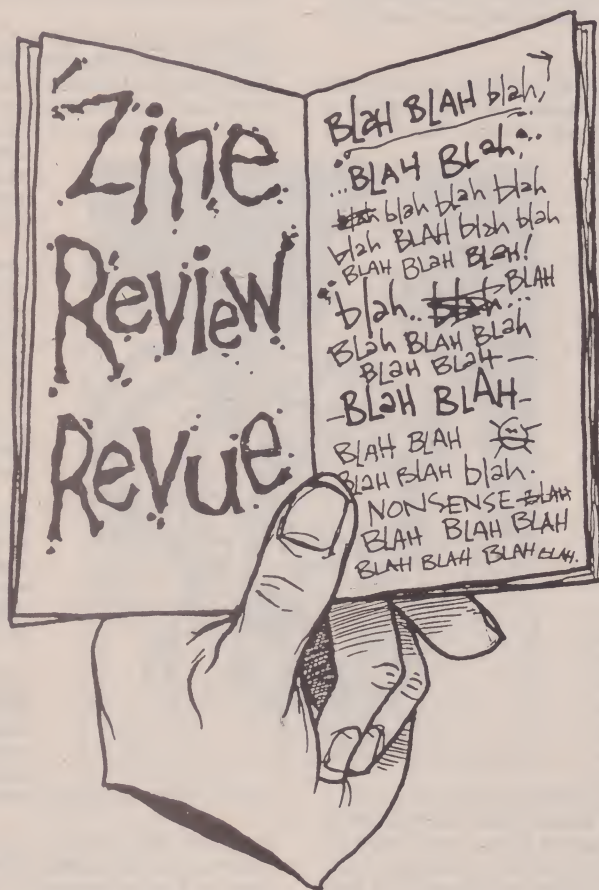 Zine
Review
Revue
BLAH BLAH blah,
...BLAH BLah,...
blah blah blah
blah BLAH blah blah
BLAH BLAH BLAH!
blah.. BLAH
BLah BLAH BLah
BLAH BLAH—
-BLaH BLAH-
BLAH BLAH
BLAH BLAH blah.
NONSENSE-BLAH
BLAH BLAH BLAH
BLAH BLAH BLAH BLAH.